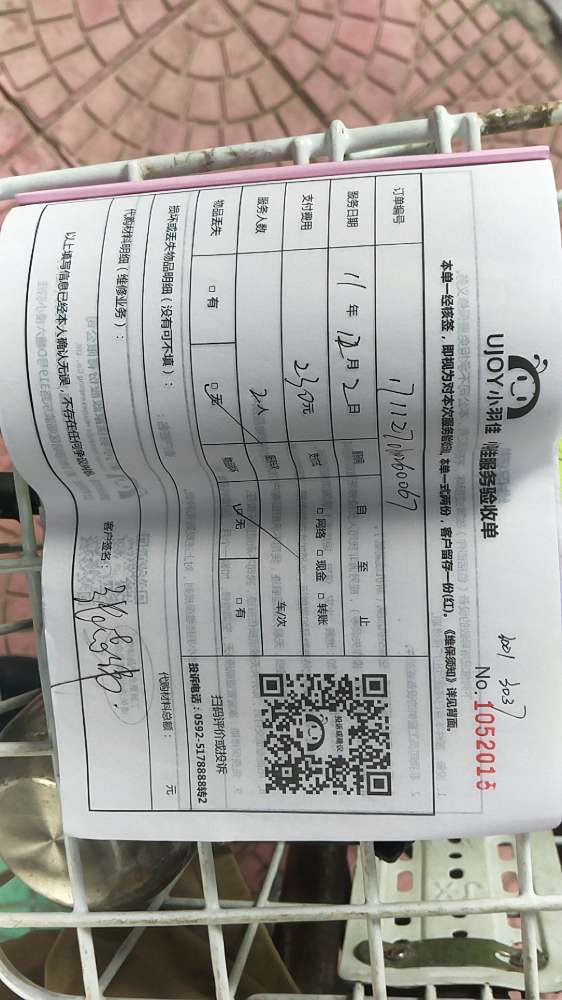 UJOY小羽佳 服务验收单
No.1052018
本单一经核签，即视为对本次服务验收。本单一式两份，客户留存一份(红)。《维保须知》详见背面。
订单编号
服务日期 11年12月2日 自 至 止
支付费用 元 □网络 □现金 □转账
服务人数 2人 车/次
物品丢失 □有 □无 □无 □有
扫码评价或投诉
投诉电话：0592-5178888转2
损坏或丢失物品明细（没有可不填）：
代购材料明细（维修业务）： 代购材料总额： 元
以上填写信息已经本人确认无误，不存在任何争议纠纷 客户签名：
投诉或建议